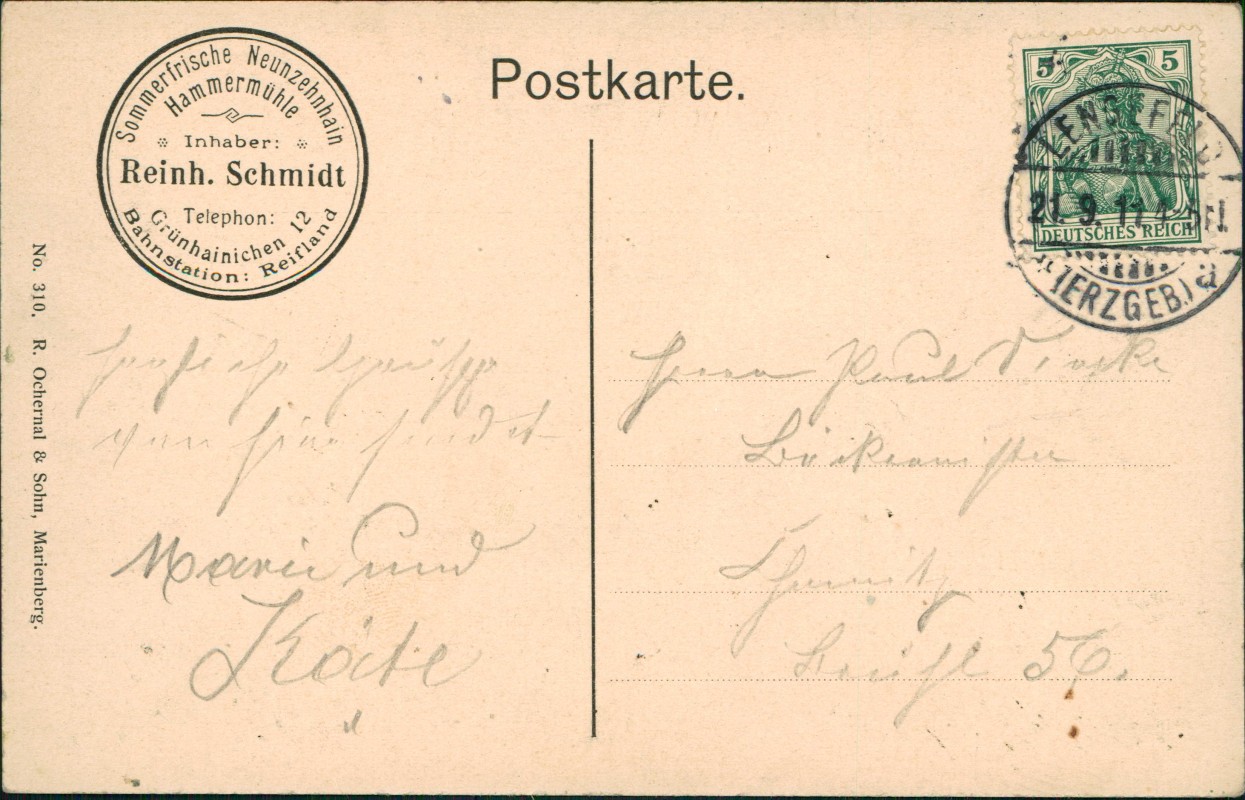 Postkarte.
Sommerfrische Neunzehnhain
Hammermühle
Inhaber:
Reinh. Schmidt
Telephon:
Grünhainichen 12
Bahnstation: Reifland
No. 310. R. Ochernal & Sohn, Marienberg.
5 5
DEUTSCHES REICH
LENGEFELD
21. 9. 11
(ERZGEB.) a
Herzliche Grüße
von hier sendet
Marie und
Käte
Herrn Paul
Bäckermister
Chemnitz
Brühl 56.